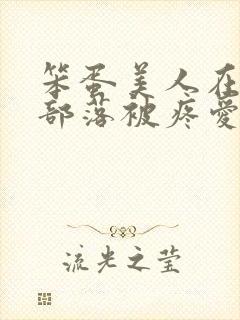 笨蛋美人在
部落被疼爱
流光之莹